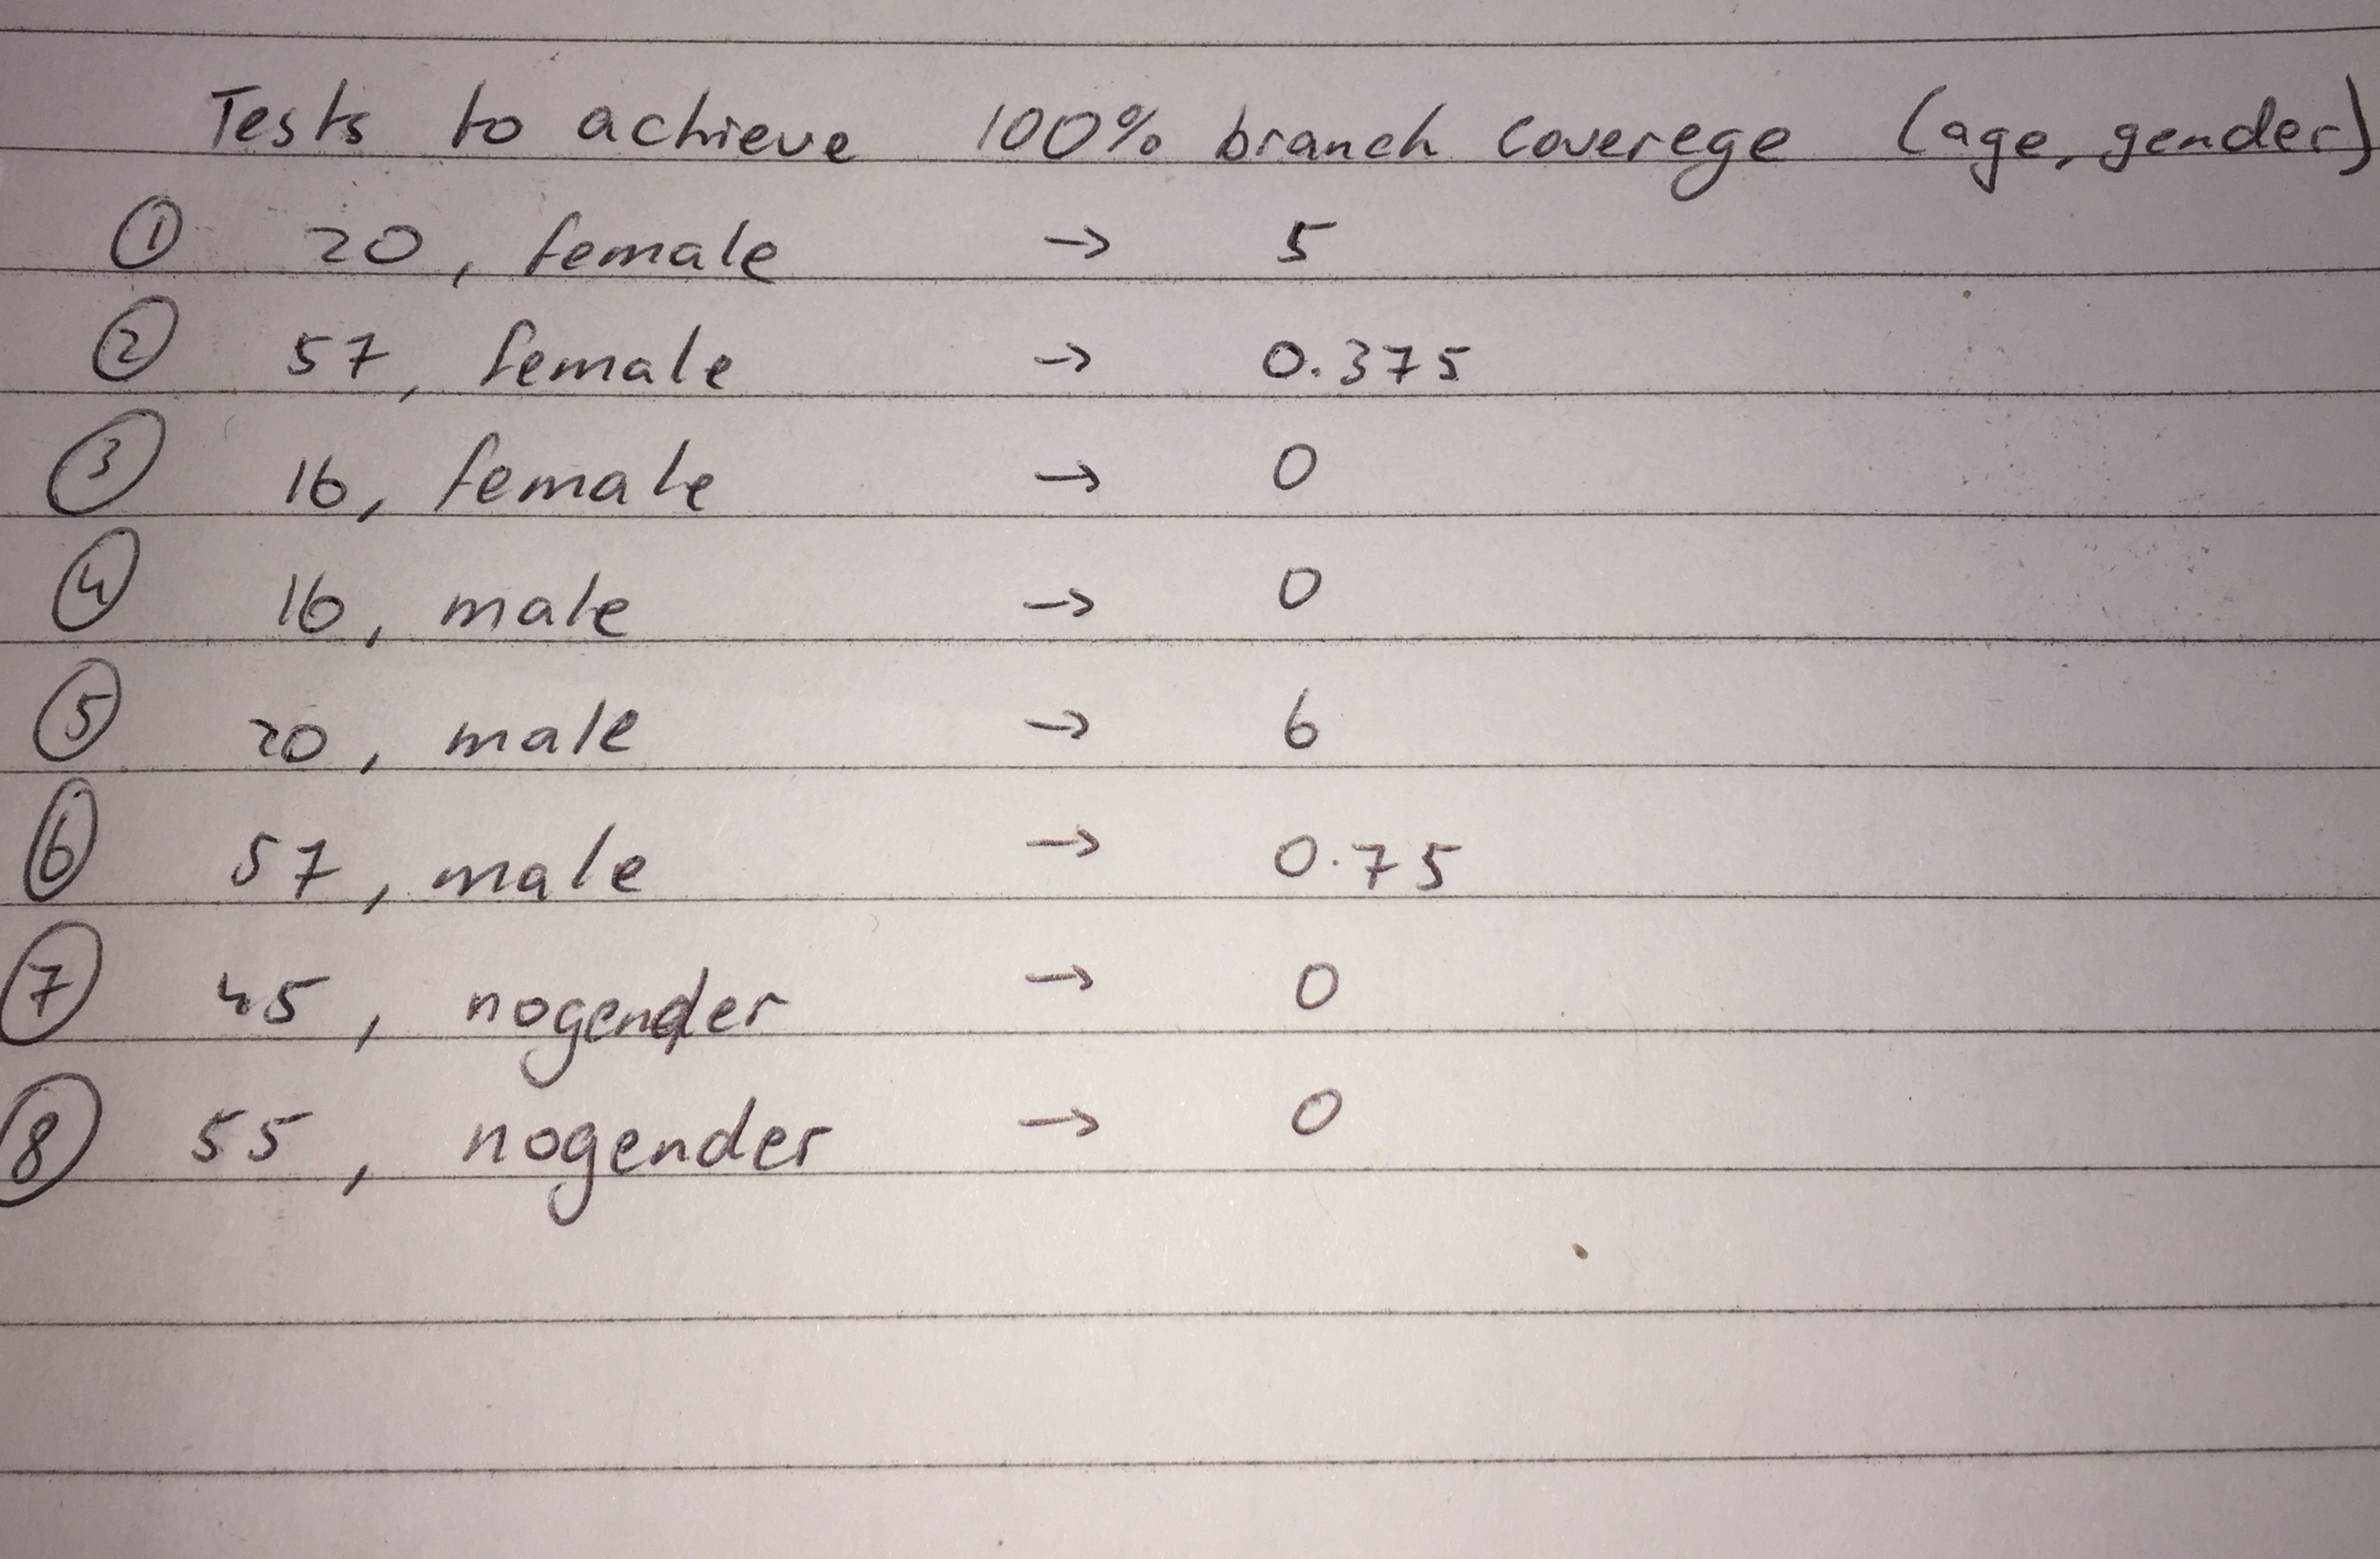 Tests to achieve 100% branch coverege (age, gender)
① 20, female → 5
② 57, female → 0.375
③ 16, female → 0
④ 16, male → 0
⑤ 20, male → 6
⑥ 57, male → 0.75
⑦ 45, nogender → 0
⑧ 55, nogender → 0